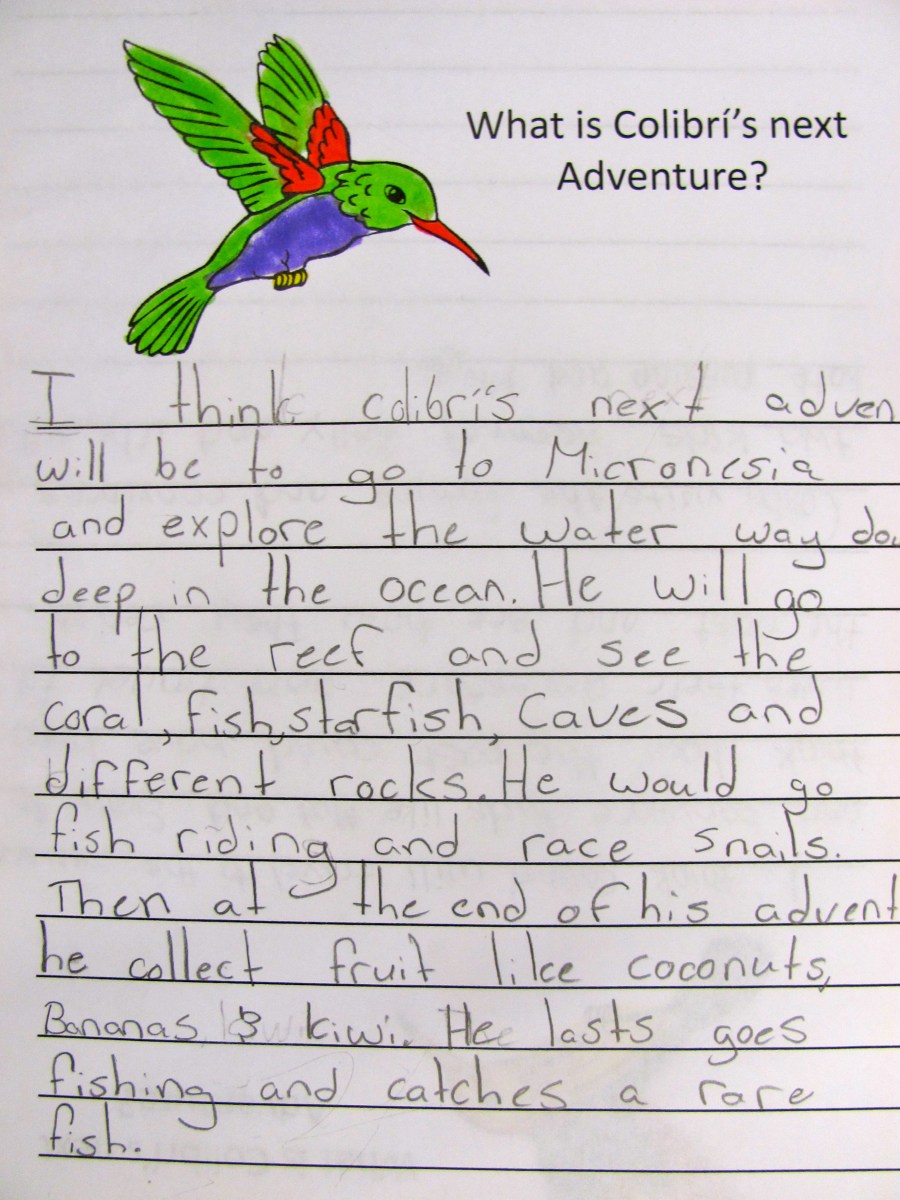 What is Colibrí's next
Adventure?
I think colibrí's next adven
will be to go to Micronesia
and explore the water way do
deep in the ocean. He will go
to the reef and see the
coral, fish, starfish, Caves and
different rocks. He would go
fish riding and race snails.
Then at the end of his advent
he collect fruit like coconuts,
Bananas, & kiwi. Hee lasts goes
fishing and catches a rare
fish.